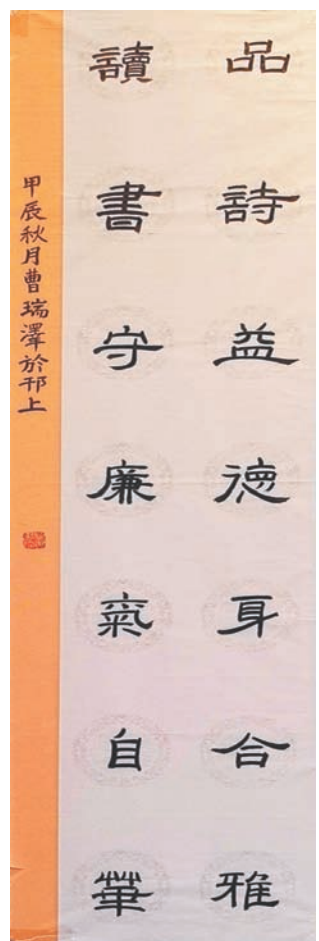 品詩益德身合雅
讀書守廉氣自華
甲辰秋月曹瑞澤於邗上